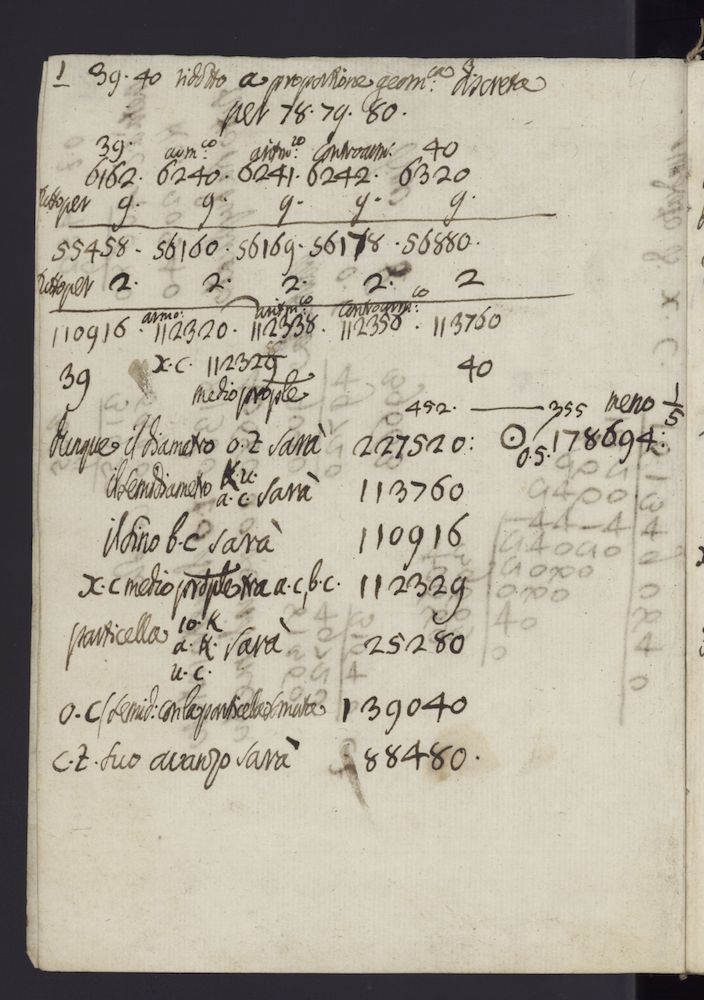 1 39. 40 ridotto a proportione geom.ca discreta
per 78. 79. 80.
39. arm.co aritm.co controarm. 40
6162. 6240. 6241. 6242. 6320
tutto per 9. 9. 9. 9. 9.
55458. 56160. 56169. 56178. 56880.
tutto per 2. 2. 2. 2. 2
armo: aritm.co controarm.co
110916. 112320. 112338. 112356. 113760
39 x.c. 112329 40
medio prop.le
452. — 355 meno 1/5
dunque il diametro o.z sarà 227520: ⊙ o.s. 178694:
il semidiametro K.u. a.c. sarà 113760
il sino b.c sarà 110916
x.c medio prop.le tra a.c, b.c. 112329
particella io.K a.K. u.c. sarà 25280
o.c (semid: con la particella) 139040
c.z. suo avanzo sarà 88480.